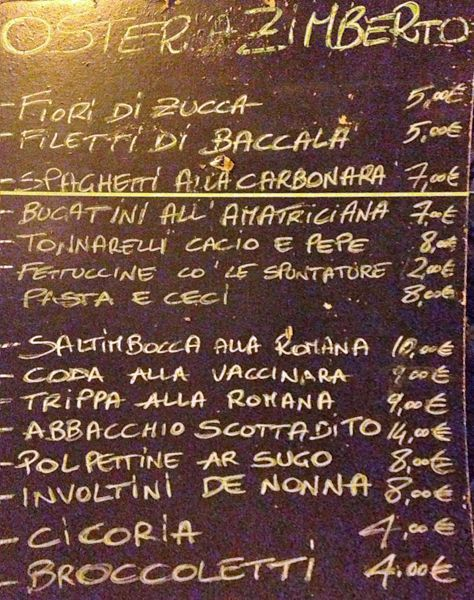 OSTERIA ZIMBERTO
- FIORI DI ZUCCA 5,00€
- FILETTI DI BACCALÀ 5,00€
- SPAGHETTI ALLA CARBONARA 7,00€
- BUCATINI ALL'AMATRICIANA 7,00€
- TONNARELLI CACIO E PEPE 8,00€
- FETTUCCINE CO' LE SPUNTATURE 12,00€
PASTA E CECI 8,00€
- SALTIMBOCCA ALLA ROMANA 10,00€
- CODA ALLA VACCINARA 9,00€
- TRIPPA ALLA ROMANA 9,00€
- ABBACCHIO SCOTTADITO 14,00€
- POLPETTINE AR SUGO 8,00€
- INVOLTINI DE NONNA 8,00€
- CICORIA 4,00€
- BROCCOLETTI 4,00€